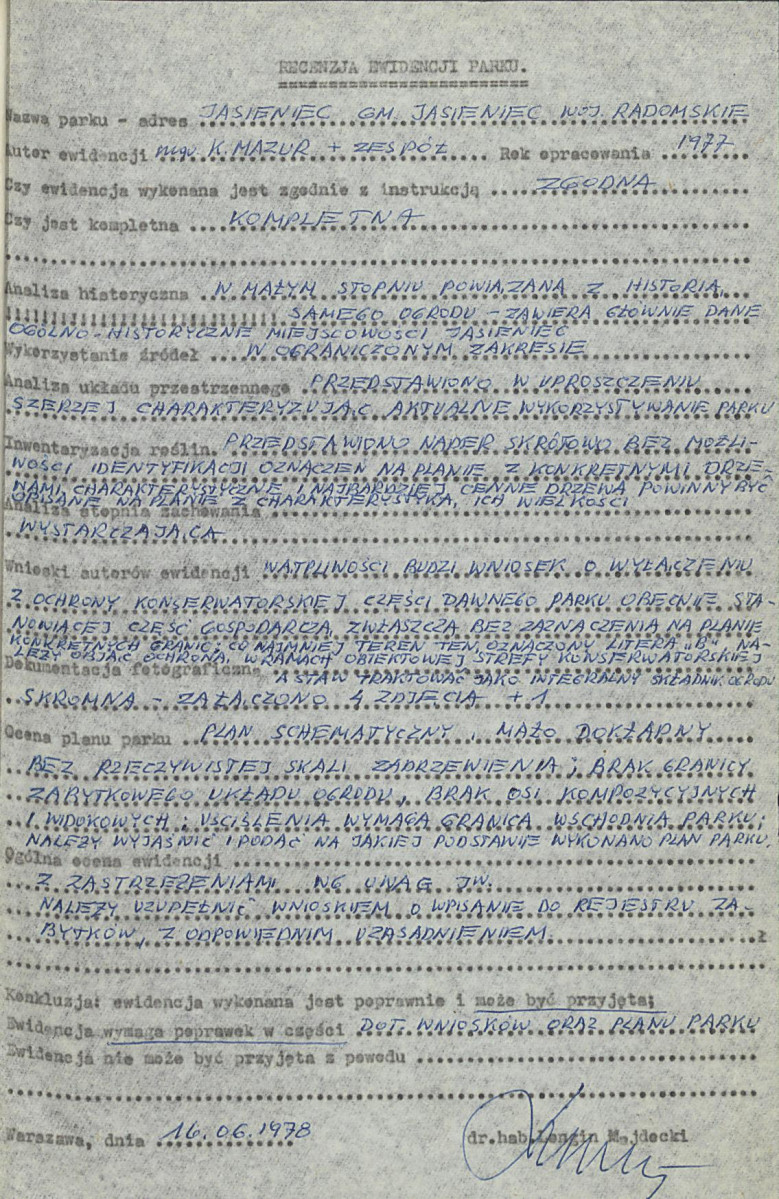 RECENZJA EWIDENCJI PARKU.
Nazwa parku - adres JASIENIEC GM. JASIENIEC WOJ. RADOMSKIE
Autor ewidencji mgr K. MAZUR + ZESPÓŁ Rok opracowania 1977
Czy ewidencja wykonana jest zgodnie z instrukcją ZGODNA
Czy jest kompletna KOMPLETNA
Analiza historyczna W MAŁYM STOPNIU POWIĄZANA Z HISTORIĄ
SAMEGO OGRODU - ZAWIERA GŁÓWNIE DANE
OGÓLNO-HISTORYCZNE MIEJSCOWOŚCI JASIENIEC
Wykorzystanie źródeł W OGRANICZONYM ZAKRESIE
Analiza układu przestrzennego PRZEDSTAWIONO W UPROSZCZENIU
SZERZEJ CHARAKTERYZUJĄC AKTUALNE WYKORZYSTYWANIE PARKU
Inwentaryzacja roślin PRZEDSTAWIONO NADER SKRÓTOWO BEZ MOŻLI-
WOŚCI IDENTYFIKACJI OZNACZEŃ NA PLANIE Z KONKRETNYMI DRZE-
WAMI, CHARAKTERYSTYCZNE I NAJBARDZIEJ CENNE DRZEWA POWINNY BYĆ
OPISANE NA PLANIE Z CHARAKTERYSTYKĄ, ICH WIELKOŚCI
Analiza stopnia zachowania
WYSTARCZAJĄCA
Wnioski autorów ewidencji WĄTPLIWOŚCI BUDZI WNIOSEK O WYŁĄCZENIU
Z OCHRONY KONSERWATORSKIEJ CZĘŚCI DAWNEGO PARKU OBECNIE STA-
NOWIĄCEJ CZĘŚĆ GOSPODARCZĄ, ZWŁASZCZA BEZ ZAZNACZENIA NA PLANIE
KONKRETNYCH GRANIC; CO NAJMNIEJ TEREN TEN, OZNACZONY LITERĄ "B" NA-
LEŻY OBJĄĆ OCHRONĄ, W RAMACH OBIEKTOWEJ STREFY KONSERWATORSKIEJ
Dokumentacja fotograficzna A STAW TRAKTOWAĆ JAKO INTEGRALNY SKŁADNIK OGRODU
SKROMNA - ZAŁĄCZONO 4 ZDJĘCIA + 1
Ocena planu parku PLAN SCHEMATYCZNY, MAŁO DOKŁADNY
BEZ RZECZYWISTEJ SKALI ZADRZEWIENIA; BRAK GRANICY
ZABYTKOWEGO UKŁADU OGRODU, BRAK OSI KOMPOZYCYJNYCH
I WIDOKOWYCH; UŚCIŚLENIA WYMAGA GRANICA WSCHODNIA PARKU;
NALEŻY WYJAŚNIĆ I PODAĆ NA JAKIEJ PODSTAWIE WYKONANO PLAN PARKU.
Ogólna ocena ewidencji
Z ZASTRZEŻENIAMI WG UWAG JW.
NALEŻY UZUPEŁNIĆ WNIOSKIEM O WPISANIE DO REJESTRU ZA-
BYTKÓW, Z ODPOWIEDNIM UZASADNIENIEM.
Konkluzja: ewidencja wykonana jest poprawnie i może być przyjęta;
Ewidencja wymaga poprawek w części DOT. WNIOSKÓW ORAZ PLANU PARKU
Ewidencja nie może być przyjęta z powodu
Warszawa, dnia 16.06.1978 dr.hab Longin Majdecki